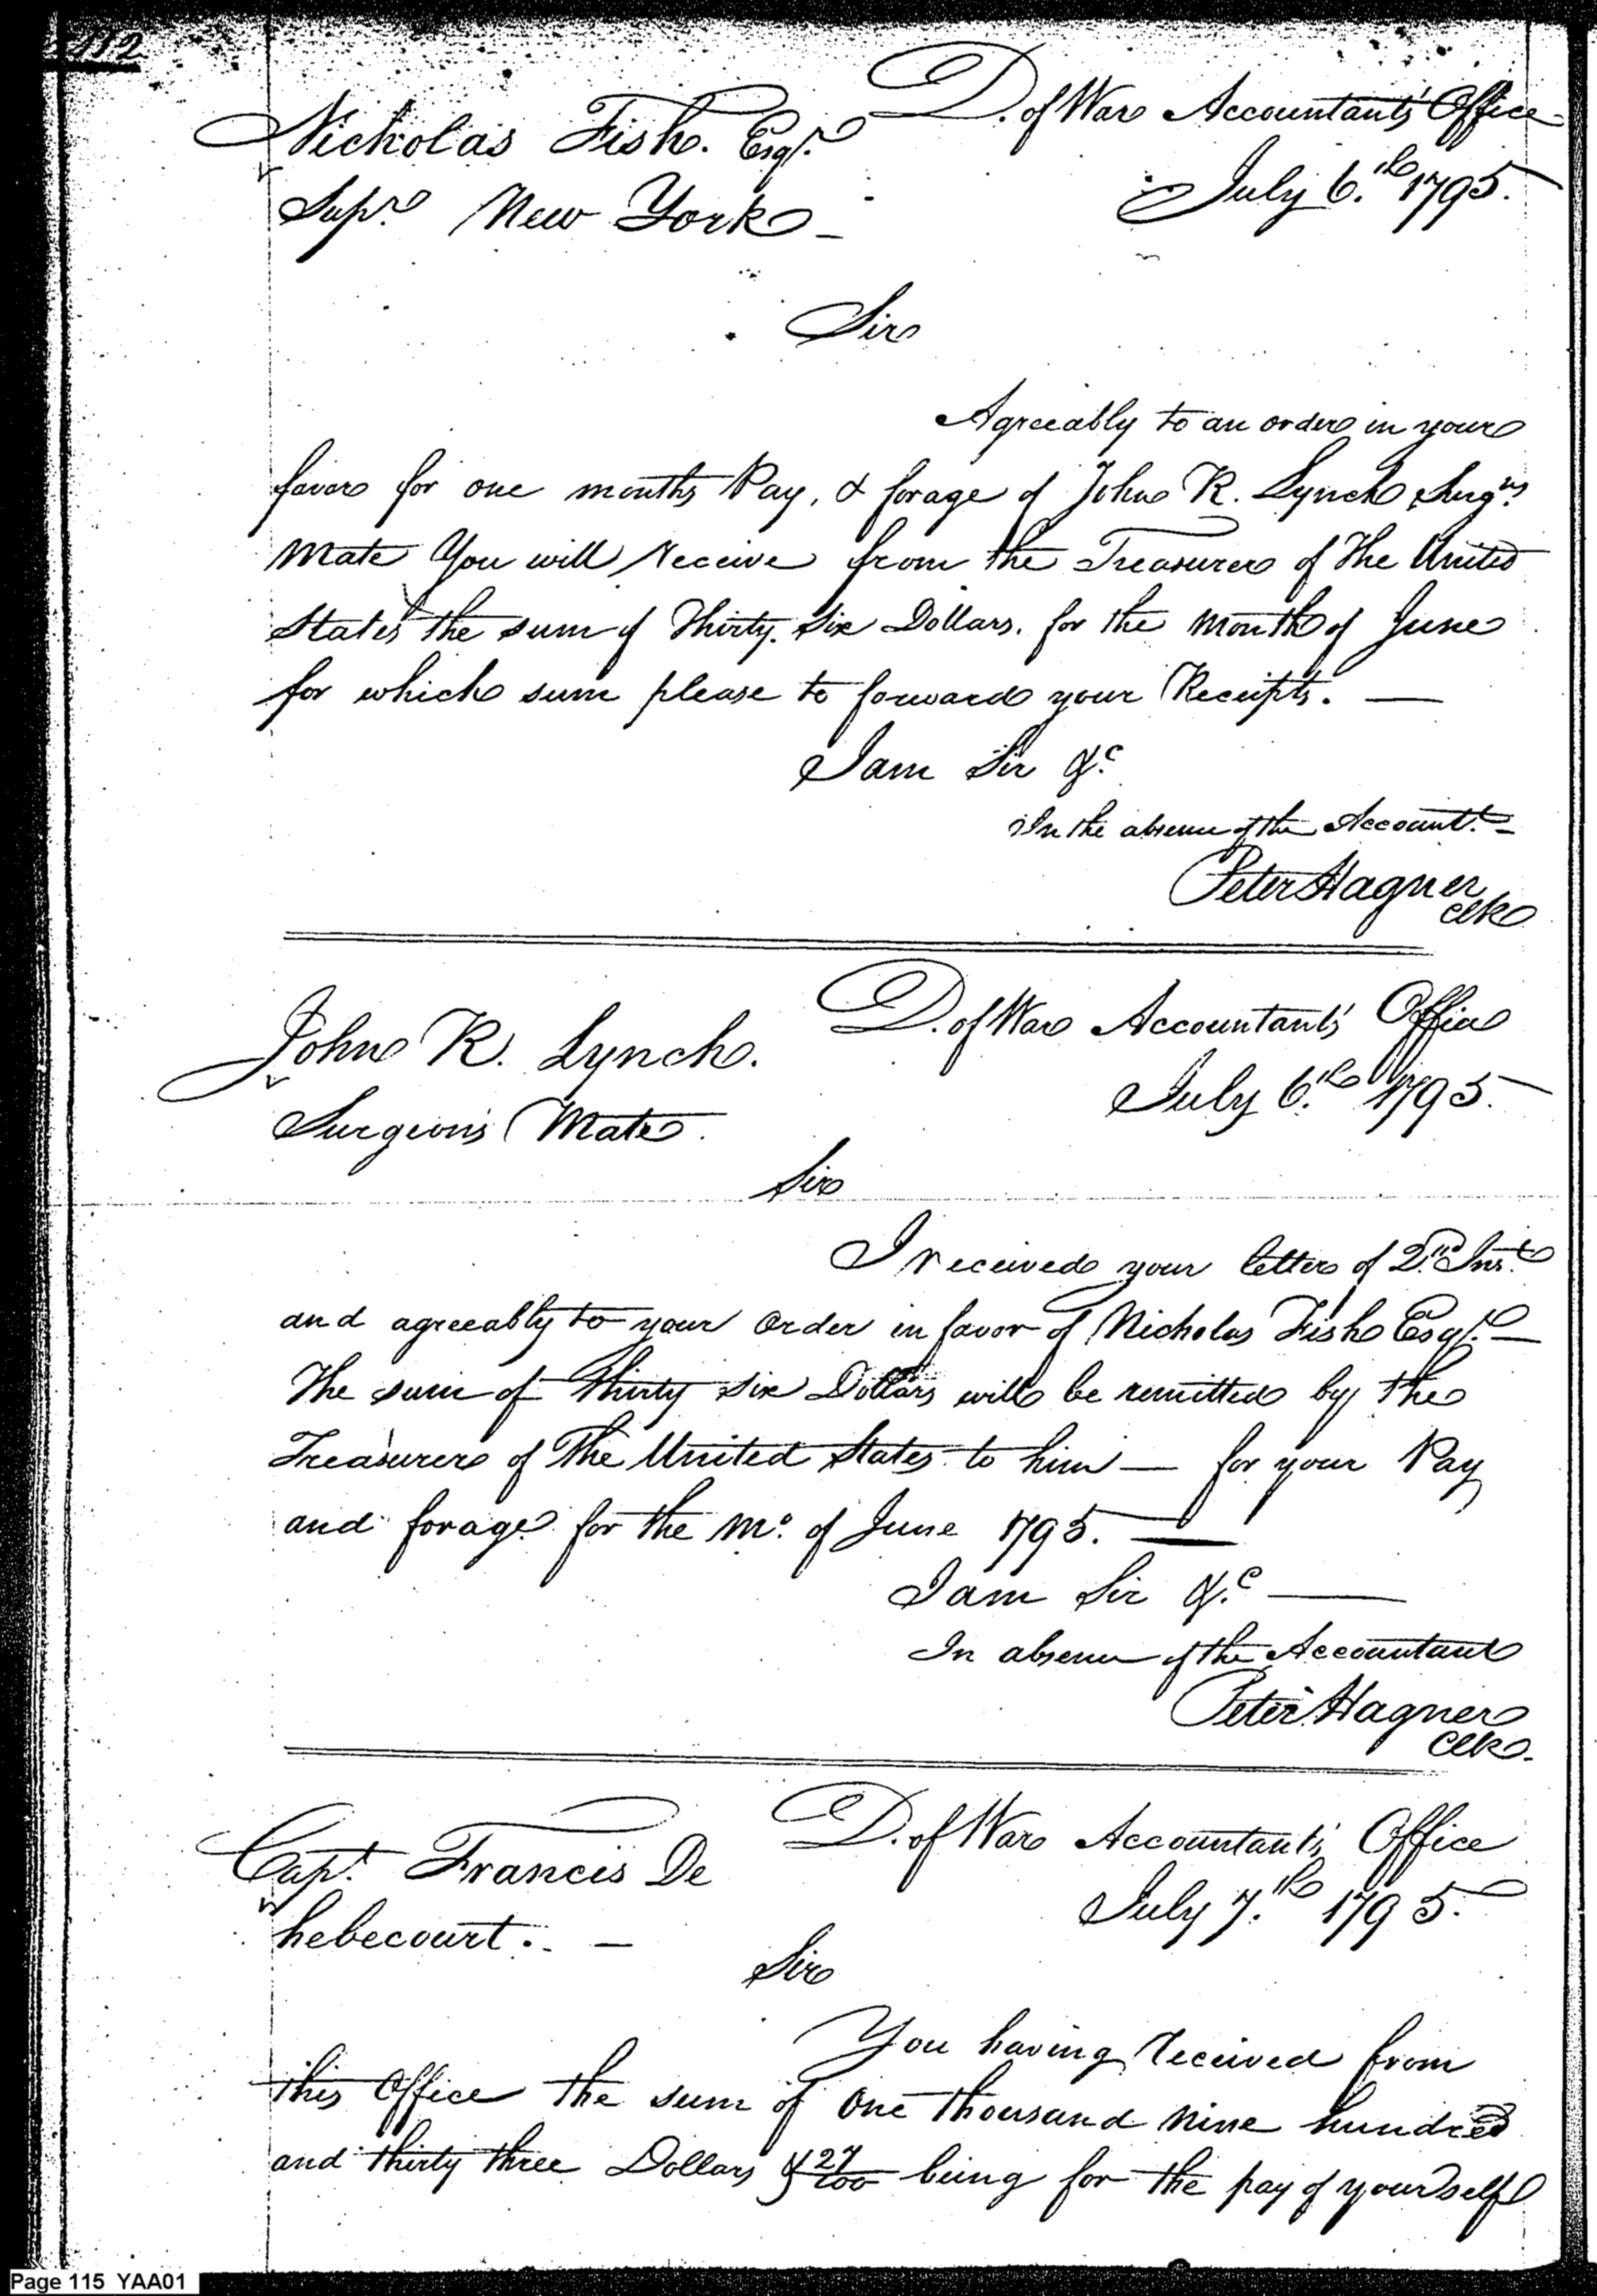 112
D. of War Accountant's Office
Nickolas Fish. Esqr.
July 6.th 1795.
Supr. New York
Sir
Agreeably to an order in your
favor for one months Pay, & forage of John R. Lynch Surgns.
Mate You will receive from the Treasurer of The United
States the sum of Thirty. Six Dollars. for the month of June
for which sum please to forward your Receipts. —
I am Sir &c.
In the absence of the Accountt. -
Peter Hagner
Clk
D. of War Accountant's Office
John R. Lynch.
July 6.th 1795.
Surgeon's Mate.
Sir
I received your letter of 2.nd Inst.
and agreeably to your order in favor of Nicholas Fish Esqr. —
The sum of Thirty six Dollars will be remitted by the
Treasurer of The United States to him — for your Pay
and forage for the mo. of June 1795. —
I am Sir &c. —
In absence of the Accountant
Peter Hagner
Clk.
D. of War Accountant's Office
Capt. Francis De
July 7.th 1795.
hebecourt. . —
Sir
You having received from
this Office the sum of One thousand nine hundred
and thirty three Dollars & 27/100 being for the pay of yourself
Page 115 YAA01